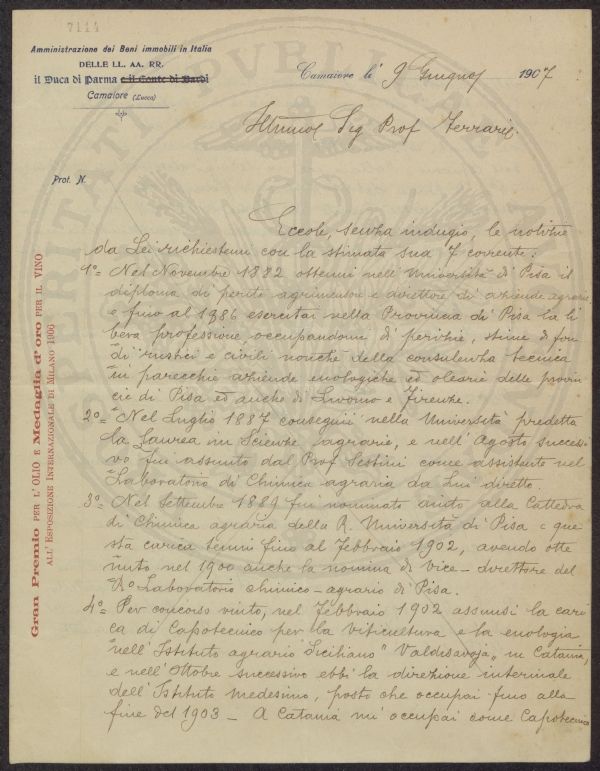 7114
Amministrazione dei Beni immobili in Italia
DELLE LL. AA. RR.
il Duca di Parma e il Conte di Bardi
Camaiore (Lucca)
Camaiore li 9 Giugno 1907
Illmo Sig Prof Ferrari
Prot. N.
Eccole, senza indugio, le notizie
da Lei richiestemi con la stimata sua 7 corrente:
1º= Nel Novembre 1882 ottenni nell'Università di Pisa il
diploma di perito agrimensore e direttore di aziende agrarie
e fino al 1986 esercitai nella Provincia di Pisa la li
bera professione occupandomi di perizie, stime di fon
di rustici e civili nonchè della consulenza tecnica
in parecchie aziende enologiche ed olearie delle provin
cie di Pisa ed anche di Livorno e Firenze.
2º= Nel Luglio 1887 conseguii nella Università predetta
la Laurea in Scienze agrarie, e nell'Agosto successi
vo fui assunto dal Prof Sestini come assistente nel
Laboratorio di Chimica agraria da Lui diretto.
3º= Nel Settembre 1889 fui nominato aiuto alla Cattedra
di Chimica agraria della R. Università di Pisa e que
sta carica tenni fino al Febbraio 1902, avendo otte
nuto nel 1900 anche la nomina di Vice-direttore del
Rº Laboratorio chimico-agrario di Pisa.
4º= Per concorso vinto, nel Febbraio 1902 assunsi la cari
ca di Capotecnico per la viticultura e la enologia
nell'Istituto agrario Siciliano "Valdisavoja" in Catania,
e nell'Ottobre successivo ebbi la direzione interinale
dell'Istituto medesimo, posto che occupai fino alla
fine del 1903 - A Catania mi occupai come Capotecnico
Gran Premio PER L'OLIO E Medaglia d'oro PER IL VINO
ALL'ESPOSIZIONE INTERNAZIONALE DI MILANO 1906